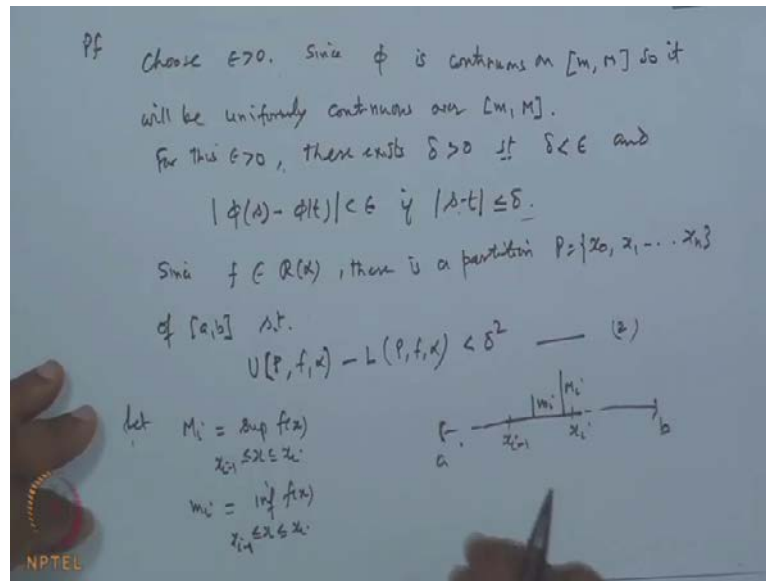 Pf Choose ϵ>0. Since ϕ is continuous on [m, M] so it
will be uniformly continuous over [m, M].
For this ϵ>0, there exists δ>0 st δ<ϵ and
|ϕ(s)-ϕ(t)|<ϵ if |s-t| ≤ δ.
Since f ∈ R(α), there is a partition P={x0, x1 --- xn}
of [a,b] s.t.
U[P, f, α) - L(P, f, α) < δ² —— (2)
let Mi = sup f(x)
xi-1 ≤ x ≤ xi
mi = inf f(x)
xi-1 ≤ x ≤ xi
mi Mi
a xi-1 xi b
NPTEL